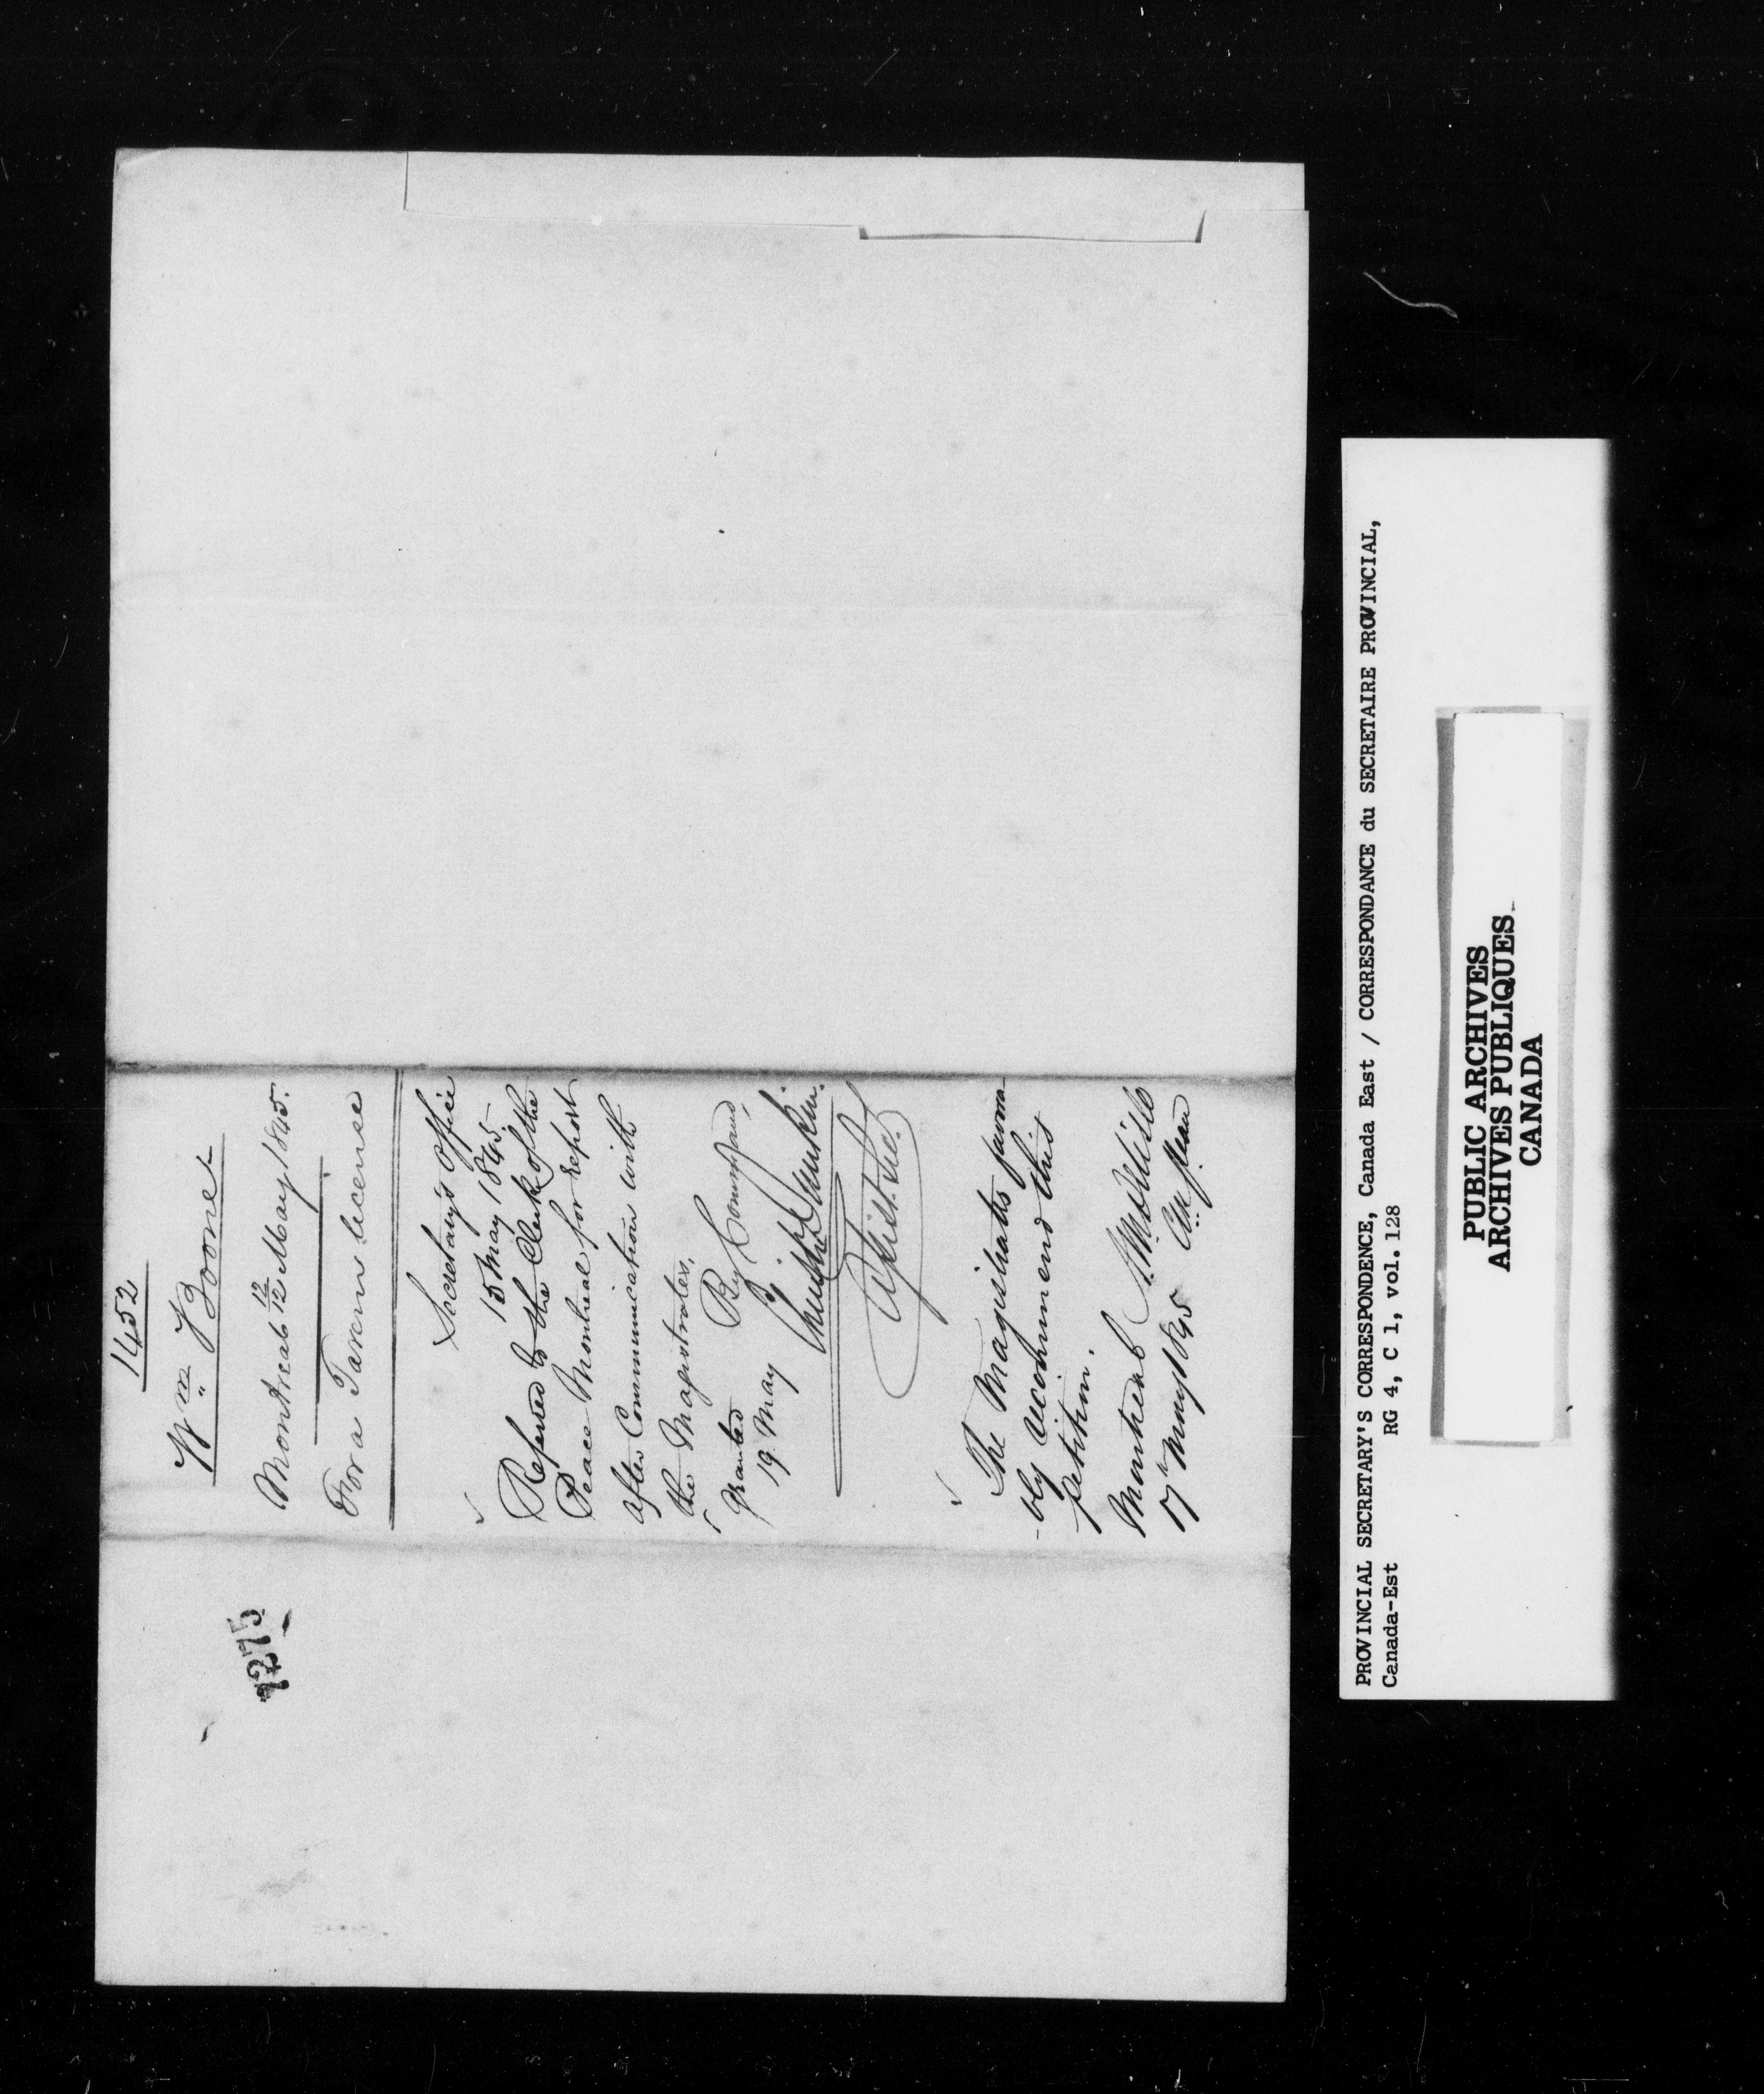 1452
Wm Boone
Montreal 12/12 May 1845.
For a Tavern licence
Secretary's Office
15 May 1845.
Referred to the Clerk of the
Peace Montreal for report
after Communication with
the Magistrates.
By Command,
Granted
19 May
The Magistrates favora-
-bly recommend this
petition.
Montreal
17h May 1845
7275
PROVINCIAL SECRETARY'S CORRESPONDENCE, Canada East / CORRESPONDANCE du SECRETAIRE PROVINCIAL,
Canada-Est RG 4, C 1, vol. 128
PUBLIC ARCHIVES
ARCHIVES PUBLIQUES
CANADA